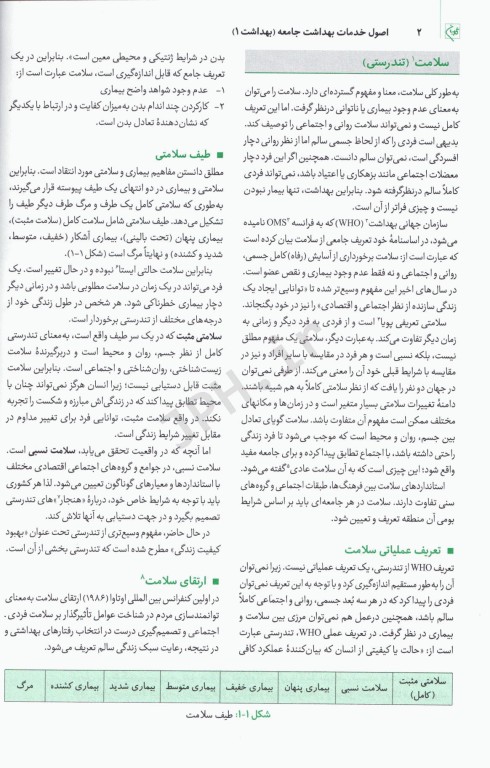 ۲ اصول خدمات بهداشت جامعه (بهداشت ۱)
سلامت۱ (تندرستی)
به‌طور کلی سلامت، معنا و مفهوم گسترده‌ای دارد. سلامت را می‌توان
به‌معنای عدم وجود بیماری یا ناتوانی درنظر گرفت. اما این تعریف
کامل نیست و نمی‌تواند سلامت روانی و اجتماعی را توصیف کند.
بدیهی است فردی را که از لحاظ جسمی سالم اما از نظر روانی دچار
افسردگی است، نمی‌توان سالم دانست. همچنین اگر این فرد دچار
معضلات اجتماعی مانند بزهکاری یا اعتیاد باشد، نمی‌تواند فردی
کاملاً سالم درنظر گرفته شود. بنابراین بهداشت، تنها بیمار نبودن
نیست و چیزی فراتر از آن است.
سازمان جهانی بهداشت۲ (WHO) که به فرانسه OMS۳ نامیده
می‌شود، در اساسنامهٔ خود تعریف جامعی از سلامت بیان کرده است
که عبارت است از: سلامت برخورداری از آسایش (رفاه) کامل جسمی،
روانی و اجتماعی و نه فقط عدم وجود بیماری و نقص عضو است.
در سال‌های اخیر این مفهوم وسیع‌تر شده تا «توانایی ایجاد یک
زندگی سازنده از نظر اجتماعی و اقتصادی» را نیز در خود بگنجاند.
سلامتی تعریفی پویا۴ است و از فردی به فرد دیگر و زمانی به
زمان دیگر تفاوت می‌کند. به‌عبارت دیگر، سلامتی یک مفهوم مطلق
نیست، بلکه نسبی است و هر فرد در مقایسه با سایر افراد و نیز در
مقایسه با شرایط قبلی خود آن را معنی می‌کند. از طرفی نمی‌توان
در جهان دو نفر را یافت که از نظر سلامتی کاملاً به هم شبیه باشند.
دامنهٔ تغییرات سلامتی بسیار متغیر است و در زمان‌ها و مکان‌های
مختلف ممکن است مفهوم آن متفاوت باشد. سلامت گویای تعادل
بین جسم، روان و محیط است که موجب می‌شود تا فرد زندگی
راحتی داشته باشد، با اجتماع تطابق پیدا کرده و برای جامعه مفید
واقع شود؛ این چیزی است که به آن سلامت عادی۵ گفته می‌شود.
استانداردهای سلامت بین فرهنگ‌ها، طبقات اجتماعی و گروه‌های
سنی تفاوت دارند. سلامت در هر جامعه‌ای باید بر اساس شرایط
بومی آن منطقه تعریف و تعیین شود.
■ تعریف عملیاتی سلامت
تعریف WHO از تندرستی، یک تعریف عملیاتی نیست. زیرا نمی‌توان
آن را به‌طور مستقیم اندازه‌گیری کرد و با توجه به این تعریف نمی‌توان
فردی را پیدا کرد که در هر سه بُعد جسمی، روانی و اجتماعی کاملاً
سالم باشد، همچنین درعمل هم نمی‌توان مرزی بین سلامت و
بیماری در نظر گرفت. در تعریف عملی WHO، تندرستی عبارت
است از: «حالت یا کیفیتی از انسان که بیان‌کنندهٔ عملکرد کافی
بدن در شرایط ژنتیکی و محیطی معین است». بنابراین در یک
تعریف جامع که قابل اندازه‌گیری است، سلامت عبارت است از:
۱- عدم وجود شواهد واضح بیماری
۲- کارکردن چند اندام بدن به‌میزان کفایت و در ارتباط با یکدیگر
که نشان‌دهندهٔ تعادل بدن است.
■ طیف سلامتی
مطلق دانستن مفاهیم بیماری و سلامتی مورد انتقاد است. بنابراین
سلامتی و بیماری در دو انتهای یک طیف پیوسته قرار می‌گیرند،
به‌طوری که سلامتی کامل یک طرف و مرگ طرف دیگر طیف را
تشکیل می‌دهد. طیف سلامتی شامل سلامت کامل (سلامت مثبت)،
بیماری پنهان (تحت بالینی)، بیماری آشکار (خفیف، متوسط،
شدید و کشنده) و نهایتاً مرگ است (شکل ۱-۱).
بنابراین سلامت حالتی ایستا۶ نبوده و در حال تغییر است. یک
فرد می‌تواند در یک زمان در سلامت مطلوبی باشد و در زمانی دیگر
دچار بیماری خطرناکی شود. هر شخص در طول زندگی خود از
درجه‌های مختلف از تندرستی برخوردار است.
سلامتی مثبت که در یک سر طیف واقع است، به‌معنای تندرستی
کامل از نظر جسم، روان و محیط است و دربرگیرندهٔ سلامت
زیست‌شناختی، روان‌شناختی و اجتماعی است. بنابراین سلامت
مثبت قابل دستیابی نیست؛ زیرا انسان هرگز نمی‌تواند چنان با
محیط تطابق پیدا کند که در زندگی‌اش مبارزه و شکست را تجربه
نکند. در واقع سلامت مثبت، توانایی فرد برای تغییر مداوم در
مقابل تغییر شرایط زندگی است.
اما آنچه که در واقعیت تحقق می‌یابد، سلامت نسبی است.
سلامت نسبی، در جوامع و گروه‌های اجتماعی اقتصادی مختلف
با استانداردها و معیارهای گوناگون تعیین می‌شود. لذا هر کشوری
باید با توجه به شرایط خاص خود، دربارهٔ «هنجار۷»های تندرستی
تصمیم بگیرد و در جهت دستیابی به آنها تلاش کند.
در حال حاضر، مفهوم وسیع‌تری از تندرستی تحت عنوان «بهبود
کیفیت زندگی» مطرح شده است که تندرستی بخشی از آن است.
■ ارتقای سلامت۸
در اولین کنفرانس بین المللی اوتاوا (۱۹۸۶) ارتقای سلامت به‌معنای
توانمندسازی مردم در شناخت عوامل تأثیرگذار بر سلامت فردی ـ
اجتماعی و تصمیم‌گیری درست در انتخاب رفتارهای بهداشتی و
در نتیجه، رعایت سبک زندگی سالم تعریف می‌شود.
سلامتی مثبت (کامل) سلامت نسبی بیماری پنهان بیماری خفیف بیماری متوسط بیماری شدید بیماری کشنده مرگ
شکل ۱-۱: طیف سلامت